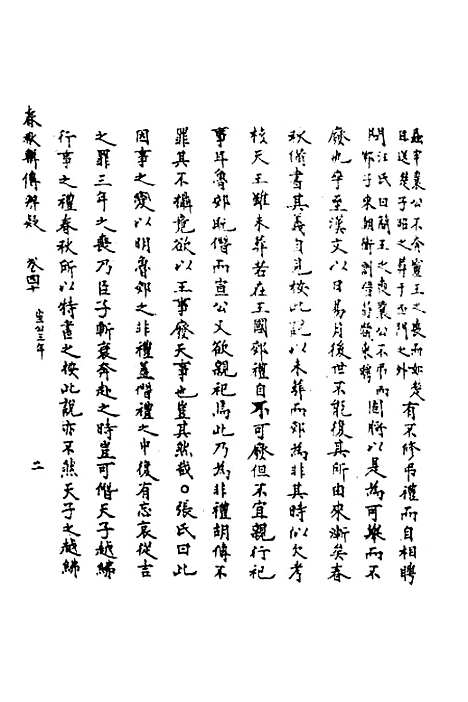 且送楚子昭之葬于西門之外有不修弔禮而自相聘
問汪氏曰簡王之喪襄公不弔而邾子來朝衛剽晉荀罃來聘固將以是為可舉而不
廢也乎至漢文以日易月後世不能復其所由來漸矣春
秋備書其義自見按此說以未葬而郊為非其時似欠考
核天王雖未葬若在王國郊禮自不可廢但不宜親行祀
事耳魯郊既僭而宣公又欲親祀焉此乃為非禮胡傳不
罪其不攝竟欲以王事廢天事也豈其然哉○張氏曰此
因事之變以明魯郊之非禮蓋僭禮之中復有忘哀從吉
之罪三年之喪乃臣子斬衰奔赴之時豈可僭天子越紼
行事之禮春秋所以特書之按此說亦不然天子之越紼
春秋輯傳辨疑 卷四十 宣公三年 二